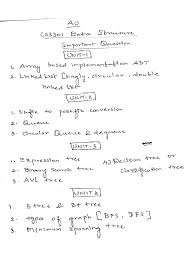 AU
CS3301 Data Structure
Important Question
UNIT-1
1. Array based implementation ADT
2. Linked List (Singly, circular, double
linked list
UNIT-2
1. Infix to postfix conversion
2. Queue
3. Circular Queue & dequeue
UNIT-3
1. Expression tree
2. Binary Search tree
3. AVL tree
4) Decision tree or
Classification tree
UNIT 4
1. B tree & B+ tree
2. types of graph [BFS, DFS]
3. Minimum spanning tree